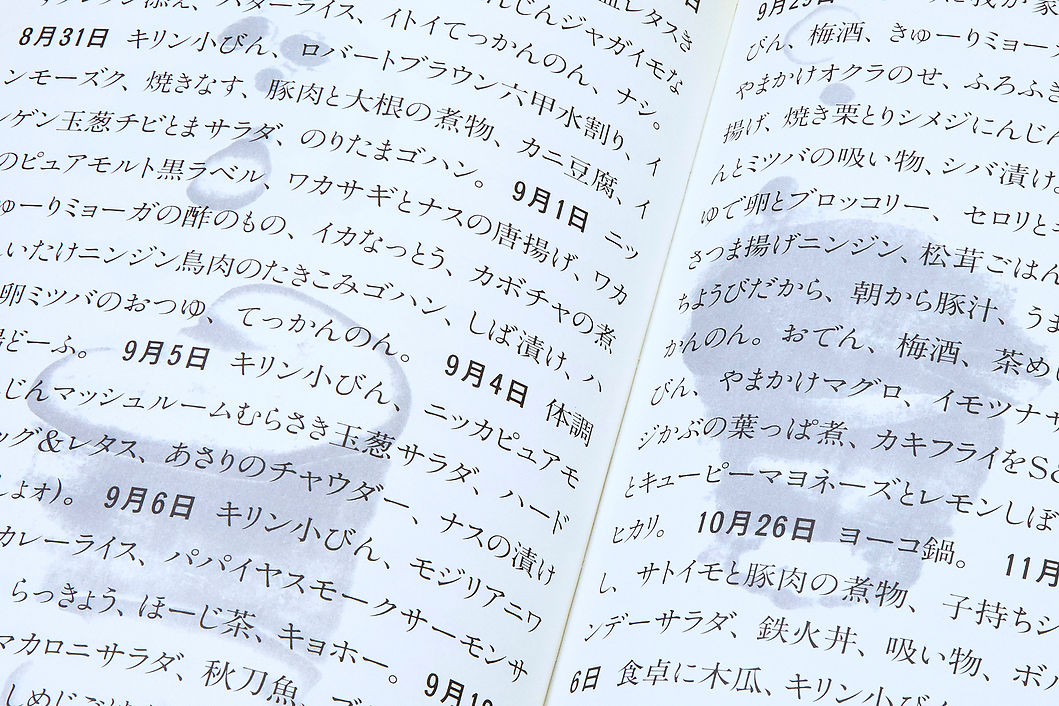 添え、バターライス、イトイてっかんのん、ナシ。
8月31日 キリン小びん、ロバートブラウン六甲水割り、イ
ンモーズク、焼きなす、豚肉と大根の煮物、カニ豆腐、イ
ンゲン玉葱チビとまサラダ、のりたまゴハン。 9月1日 ニッ
のピュアモルト黒ラベル、ワカサギとナスの唐揚げ、ワカ
ゅーりミョーガの酢のもの、イカなっとう、カボチャの煮
いたけニンジン鳥肉のたきこみゴハン、しば漬け、ハ
卵ミツバのおつゆ、てっかんのん。 9月4日 体調
どーふ。 9月5日 キリン小びん、ニッカピュアモ
じんマッシュルームむらさき玉葱サラダ、ハード
ッグ&レタス、あさりのチャウダー、ナスの漬け
しょォ)。 9月6日 キリン小びん、モジリアニワ
カレーライス、パパイヤスモークサーモンサ
らっきょう、ほーじ茶、キョホー。 9月1
マカロニサラダ、秋刀魚、
しめじご
9月29日
びん、梅酒、きゅーりミョーガ
やまかけオクラのせ、ふろふき
揚げ、焼き栗とりシメジにんじん
んとミツバの吸い物、シバ漬け。
ゆで卵とブロッコリー、セロリと
さつま揚げニンジン、松茸ごはん
ちようびだから、朝から豚汁、うま
かんのん。おでん、梅酒、茶めし
びん、やまかけマグロ、イモツナサ
ジかぶの葉っぱ煮、カキフライをSo
とキューピーマヨネーズとレモンしぼ
ヒカリ。 10月26日 ヨーコ鍋。 11月
し、サトイモと豚肉の煮物、子持ちシ
ンデーサラダ、鉄火丼、吸い物、ボ
6日 食卓に木瓜、キリン小びん